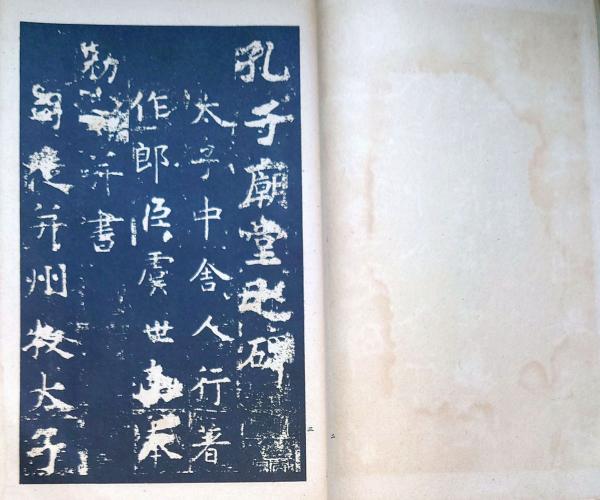 孔子廟堂之碑
太子中舍人行著
作郎臣虞世南奉
勑并書
司徒并州牧太子
三
二